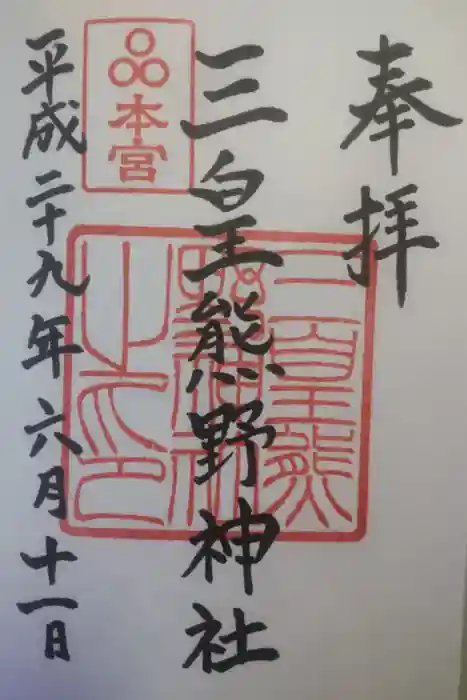 奉拝
三皇熊野神社
本宮
平成二十九年六月十一日
三皇熊
野神社
之印